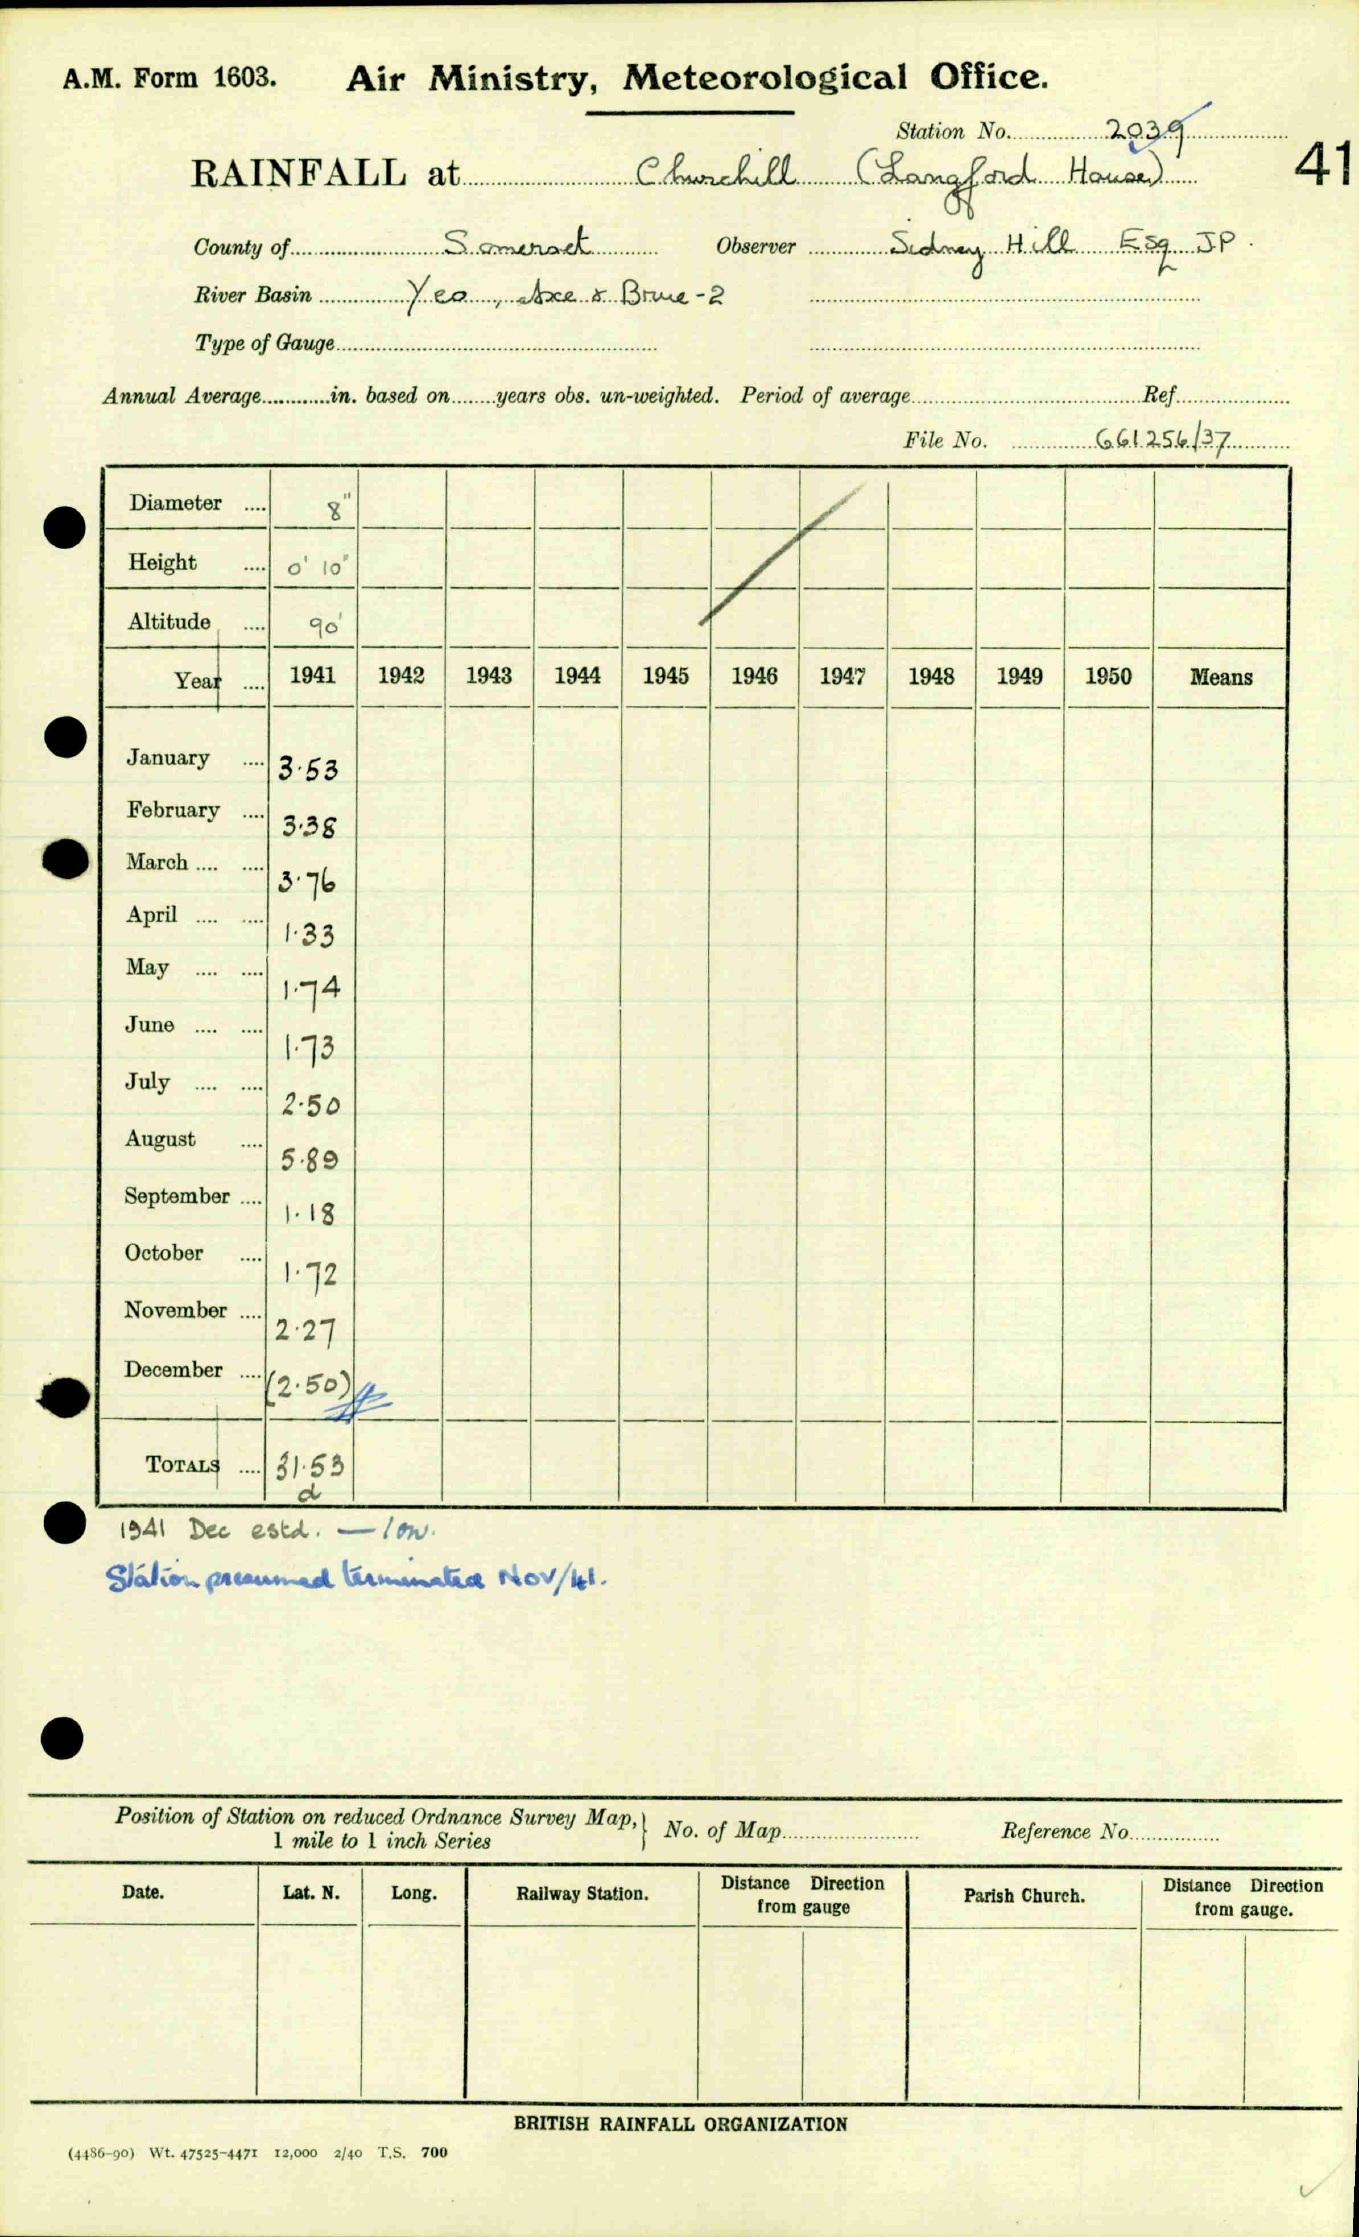 A.M. Form 1603. Air Ministry, Meteorological Office.
Station No. 2039
41
RAINFALL at Churchill (Langford House)
County of Somerset Observer Sidney Hill Esq JP.
River Basin Yeo, Axe & Brue - 2
Type of Gauge
Annual Average in. based on years obs. un-weighted. Period of average Ref.
File No. 661256/37
Diameter .... 8"
Height .... 0' 10"
Altitude .... 90'
Year .... 1941 1942 1943 1944 1945 1946 1947 1948 1949 1950 Means
January .... 3.53
February .... 3.38
March .... .... 3.76
April .... .... 1.33
May .... .... 1.74
June .... .... 1.73
July .... .... 2.50
August .... 5.89
September .... 1.18
October .... 1.72
November .... 2.27
December .... (2.50)
TOTALS .... 31.53
d
1941 Dec estd. — low.
Station presumed terminated Nov/41.
Position of Station on reduced Ordnance Survey Map, } No. of Map Reference No.
1 mile to 1 inch Series
Date. Lat. N. Long. Railway Station. Distance Direction from gauge Parish Church. Distance Direction from gauge.
BRITISH RAINFALL ORGANIZATION
(4486-90) Wt. 47525-4471 12,000 2/40 T.S. 700